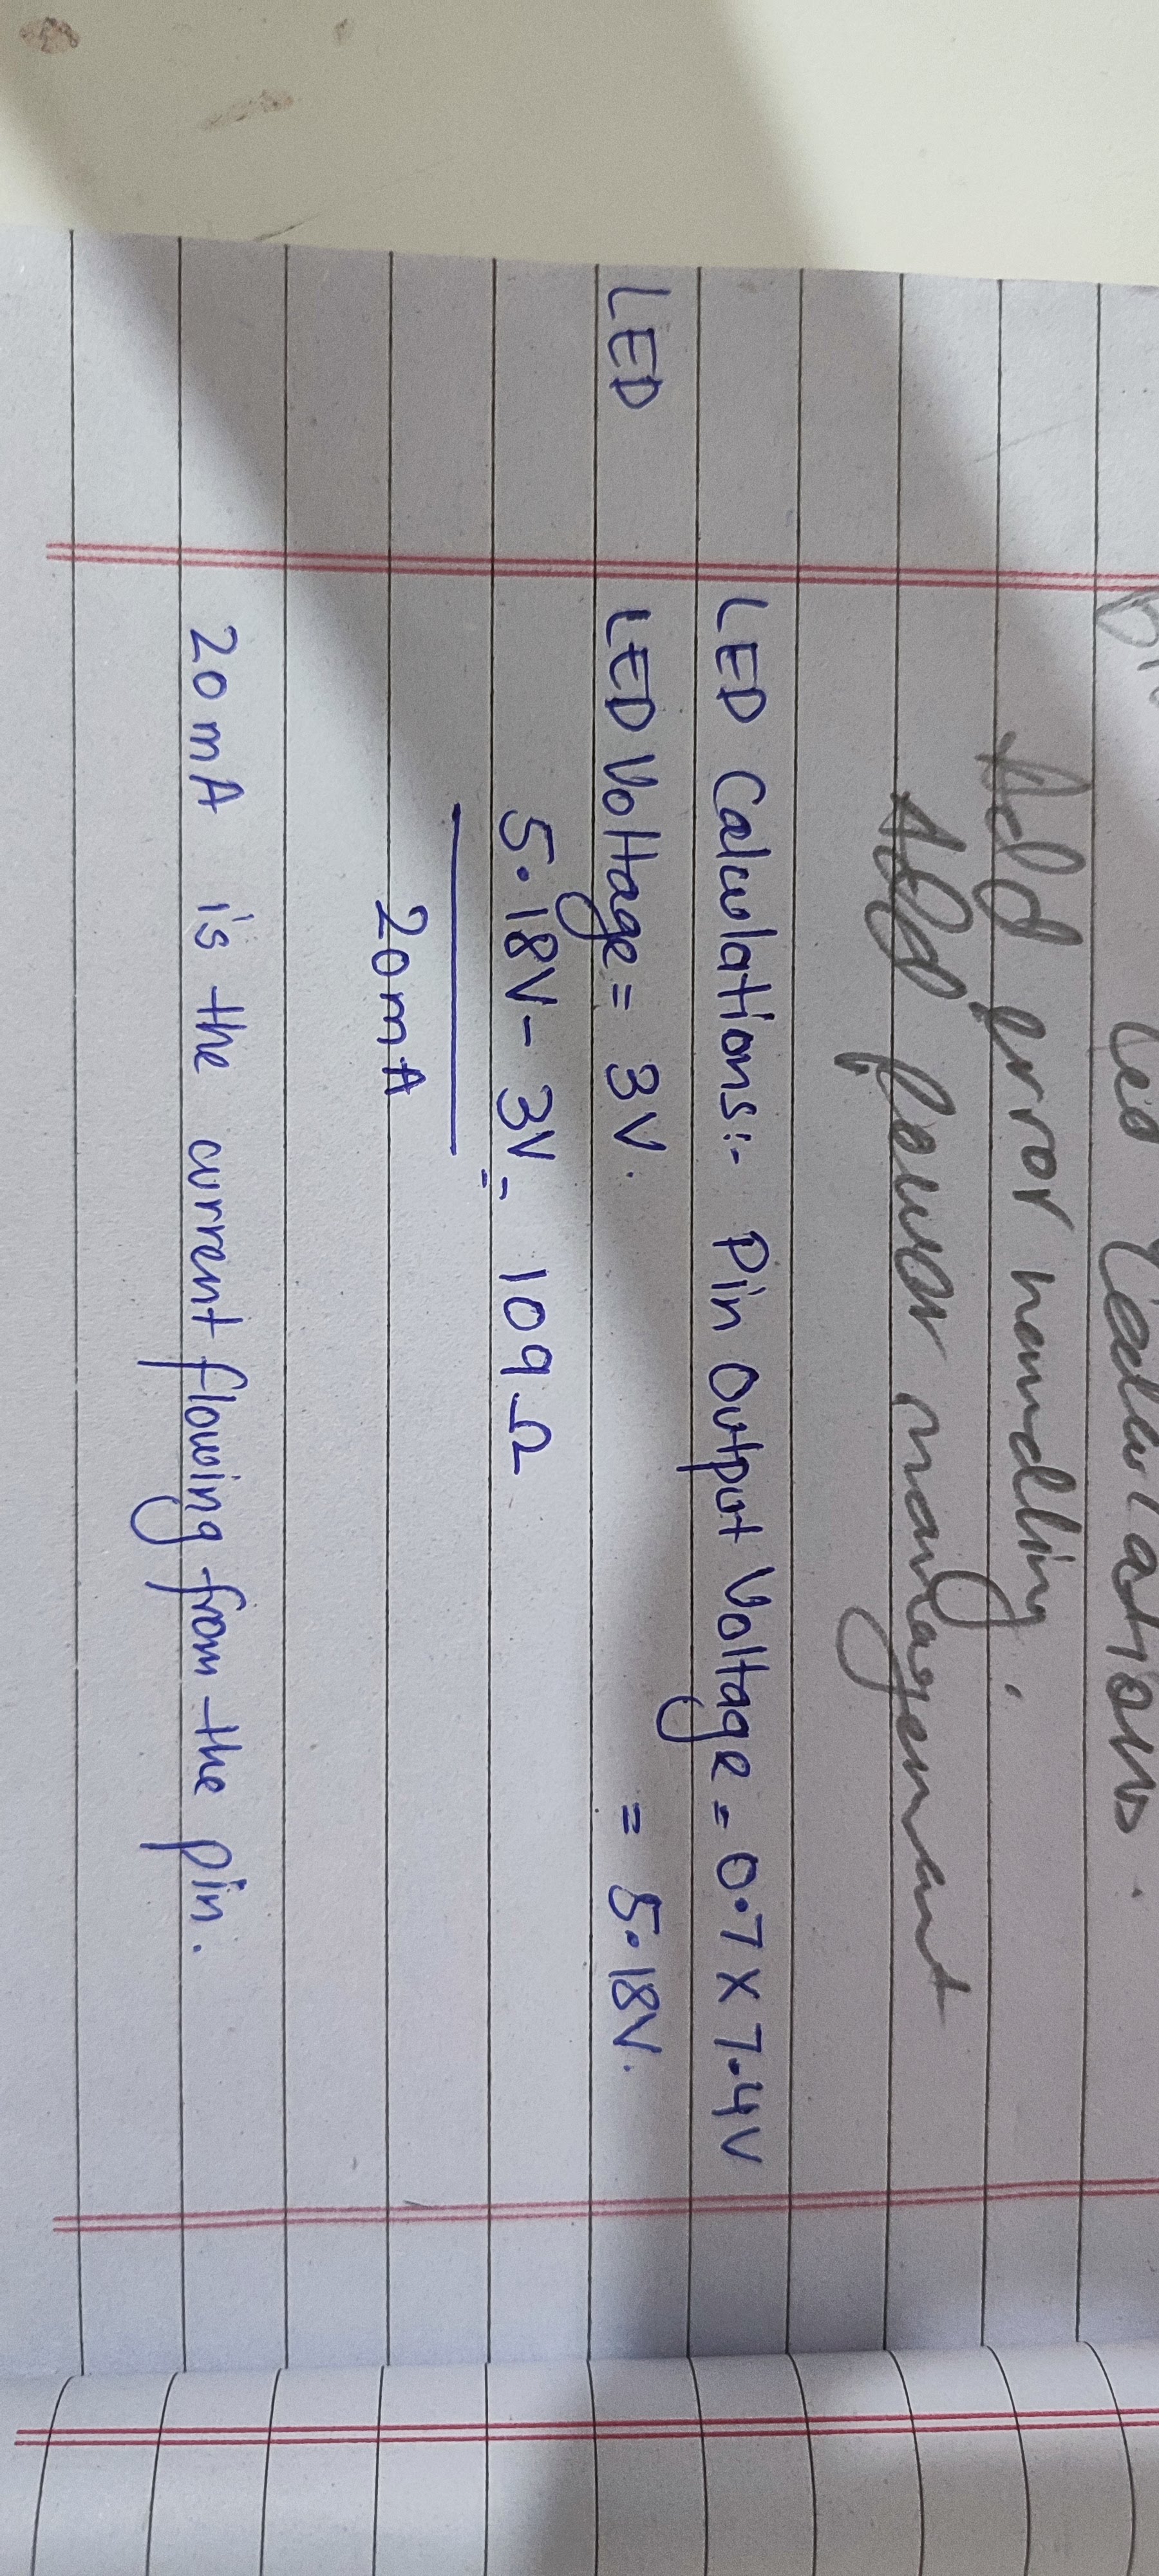 Led Calculations.
Add error handling.
Add power management
LED Calculations:- Pin Output Voltage = 0.7 X 7.4V
LED LED Voltage = 3V. = 5.18V.
5.18V - 3V = 109Ω
20mA
20mA is the current flowing from the pin.